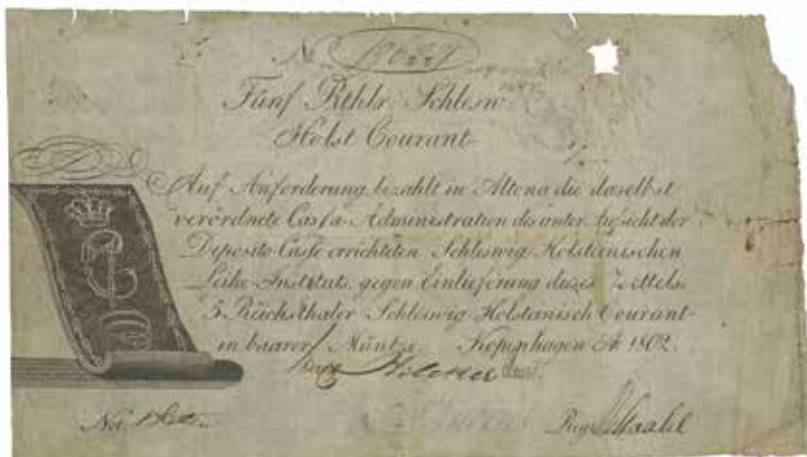 No. 19627
Fünf Rthlr. Schlesw.
Holst Courant
Auf Anforderung bezahlt in Altona die daselbst
verordnete Cassa-Administration des unter Aufsicht der
Deposito-Casse errichteten Schleswig Holsteinischen
Leihe-Instituts gegen Einlieferung dieses Zettels
5 Reichsthaler Schleswig-Holsteinisch Courant
in baarer Müntze. Kopenhagen Ao 1802.
Not.